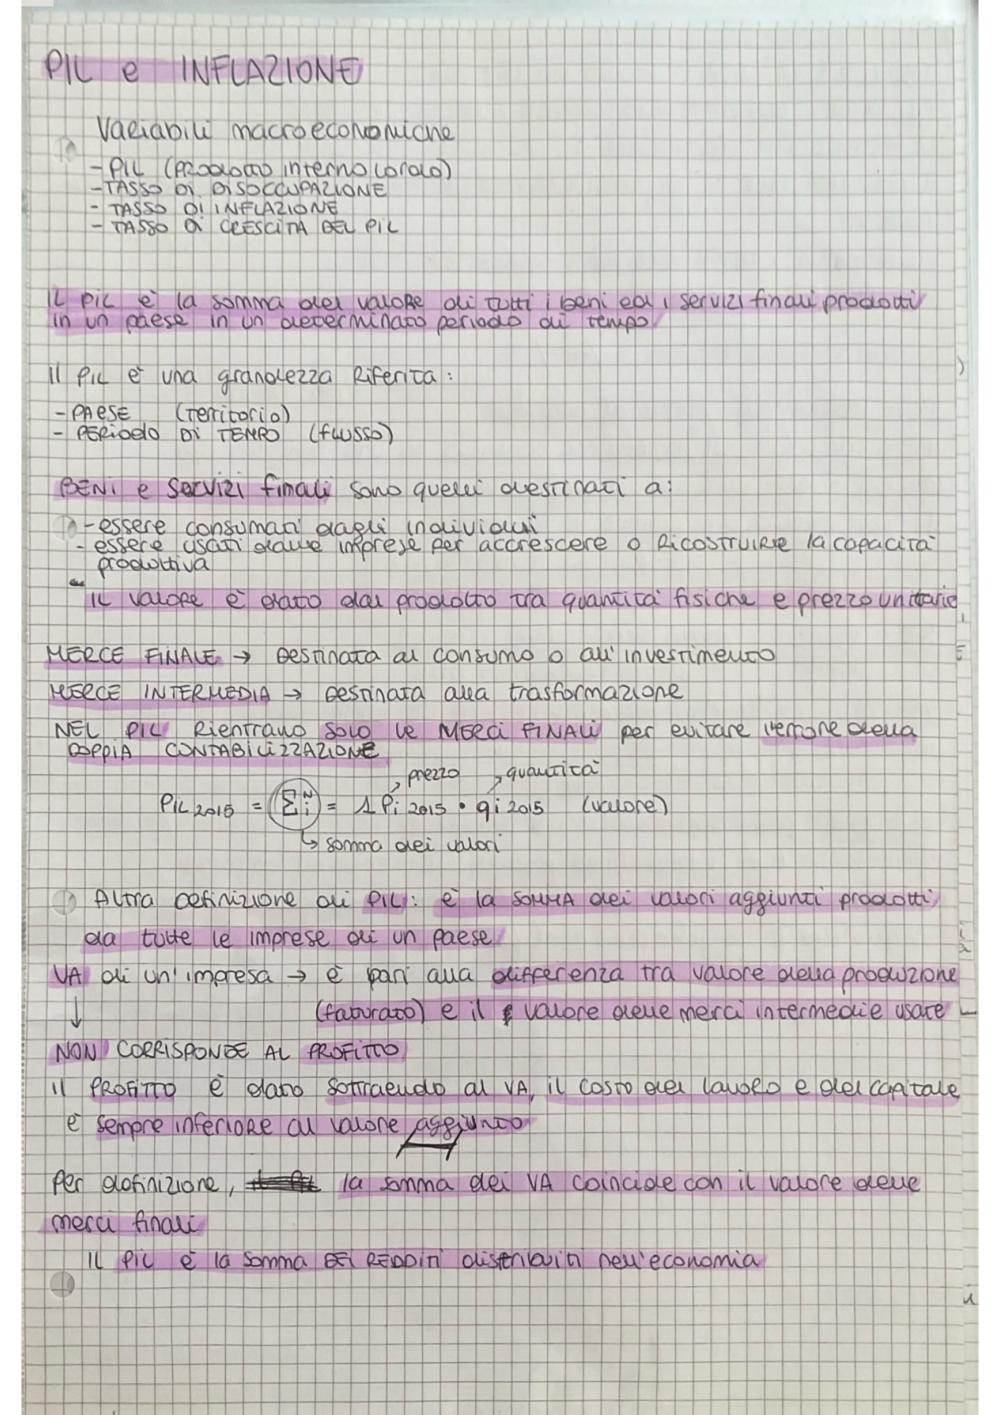 PIL e INFLAZIONE
Variabili macroeconomiche
- PIL (PRODOTTO interno lordo)
- TASSO DI DISOCCUPAZIONE
- TASSO DI INFLAZIONE
- TASSO DI CRESCITA DEL PIL
IL PIL è la somma del valore di tutti i beni ed i servizi finali prodotti
in un paese in un determinato periodo di tempo
Il PIL è una grandezza riferita:
- PAESE (territorio)
- PERIODO DI TEMPO (flusso)
BENI e servizi finali sono quelli destinati a:
- essere consumati dagli individui
- essere usati dalle imprese per accrescere o ricostruire la capacità
produttiva
IL valore è dato dal prodotto tra quantità fisiche e prezzo unitario
MERCE FINALE → Destinata al consumo o all'investimento
MERCE INTERMEDIA → Destinata alla trasformazione
NEL PIL Rientrano solo le MERCI FINALI per evitare l'errore della
DOPPIA CONTABILIZZAZIONE
prezzo quantità
PIL 2015 = Σ N i = 1 Pi 2015 • qi 2015 (valore)
↳ somma dei valori
Altra definizione di PIL: è la SOMMA dei valori aggiunti prodotti
da tutte le imprese di un paese
VA di un'impresa → è pari alla differenza tra valore della produzione
↓ (fatturato) e il valore delle merci intermedie usate
NON CORRISPONDE AL PROFITTO
Il PROFITTO è dato sottraendo al VA, il costo del lavoro e del capitale
è sempre inferiore al valore aggiunto
Per definizione, la somma dei VA coincide con il valore delle
merci finali
IL PIL è la somma DEI REDDITI distribuiti nell'economia